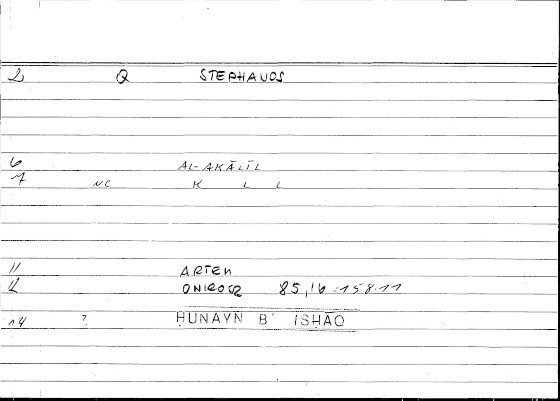 2 Q STEPHANOS
6 AL-AKĀLĪL
7 NC K L L
11 ARTEM
12 ONIROCR 85,16 - 158.11
14 ? ḤUNAYN B' ISḤĀQ